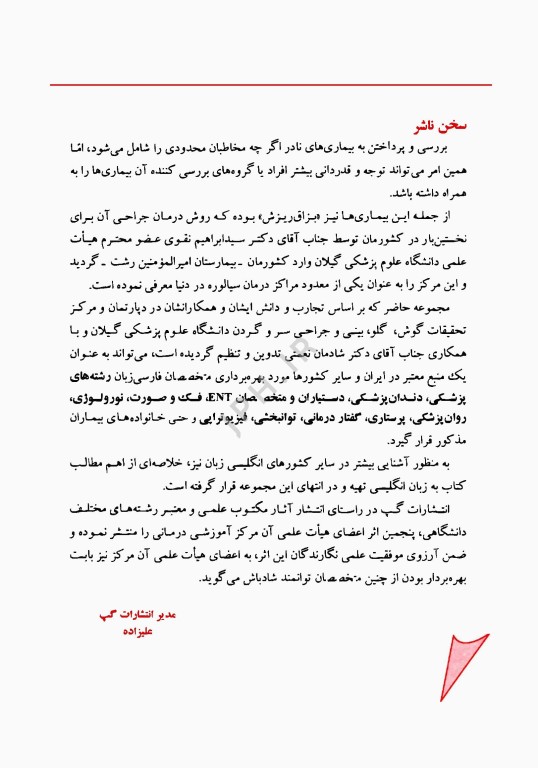 سخن ناشر
بررسی و پرداختن به بیماری‌های نادر اگر چه مخاطبان محدودی را شامل می‌شود، امّا
همین امر می‌تواند توجه و قدردانی بیشتر افراد یا گروه‌های بررسی کننده آن بیماری‌ها را به
همراه داشته باشد.
از جمله این بیماری‌ها نیز «بزاق‌ریزش» بوده که روش درمان جراحی آن برای
نخستین‌بار در کشورمان توسط جناب آقای دکتر سیدابراهیم نقوی عضو محترم هیأت
علمی دانشگاه علوم پزشکی گیلان وارد کشورمان ـ بیمارستان امیرالمؤمنین رشت ـ گردید
و این مرکز را به عنوان یکی از معدود مراکز درمان سیالوره در دنیا معرفی نموده است.
مجموعه حاضر که بر اساس تجارب و دانش ایشان و همکارانشان در دپارتمان و مرکز
تحقیقات گوش، گلو، بینی و جراحی سر و گردن دانشگاه علوم پزشکی گیلان و با
همکاری جناب آقای دکتر شادمان نعمتی تدوین و تنظیم گردیده است، می‌تواند به عنوان
یک منبع معتبر در ایران و سایر کشورها مورد بهره‌برداری متخصصان فارسی‌زبان رشته‌های
پزشکی، دندان‌پزشکی، دستیاران و متخصصان ENT، فک و صورت، نورولوژی،
روان‌پزشکی، پرستاری، گفتار درمانی، توانبخشی، فیزیوتراپی و حتی خانواده‌های بیماران
مذکور قرار گیرد.
به منظور آشنایی بیشتر در سایر کشورهای انگلیسی زبان نیز، خلاصه‌ای از اهم مطالب
کتاب به زبان انگلیسی تهیه و در انتهای این مجموعه قرار گرفته است.
انتشارات گپ در راستای انتشار آثار مکتوب علمی و معتبر رشته‌های مختلف
دانشگاهی، پنجمین اثر اعضای هیأت علمی آن مرکز آموزشی درمانی را منتشر نموده و
ضمن آرزوی موفقیت علمی نگارندگان این اثر، به اعضای هیأت علمی آن مرکز نیز بابت
بهره‌بردار بودن از چنین متخصصان توانمند شادباش می‌گوید.
مدیر انتشارات گپ
علیزاده
JPH.IR